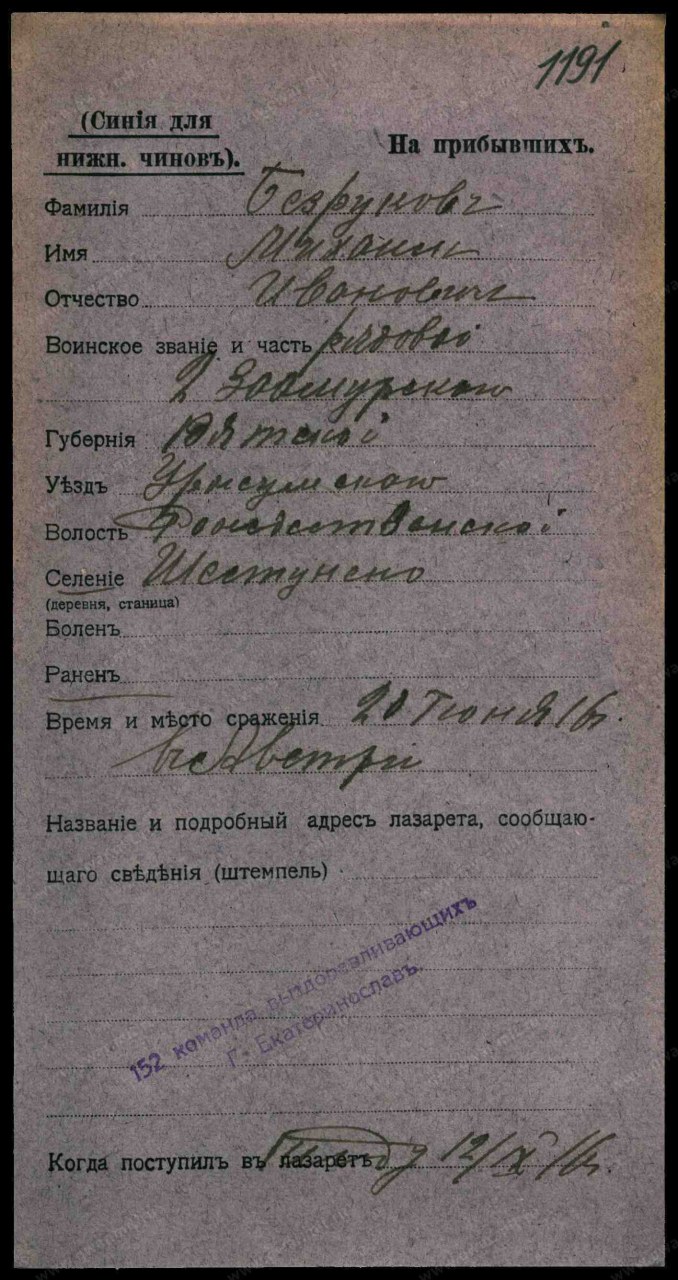 1191
(Синія для
нижн. чиновъ).
На прибывшихъ.
Фамилія Безруковъ
Имя Михаилъ
Отчество Ивановичъ
Воинское званіе и часть рядовой
2 Заамурскаго
Губернія Вятской
Уѣздъ Уржумскаго
Волость Рождественской
Селеніе
(деревня, станица)
Боленъ
Раненъ
Время и мѣсто сраженія 20 Іюня 16 г.
Австріи
Названіе и подробный адресъ лазарета, сообщаю-
щаго свѣдѣнія (штемпель)
152 команда выздоравливающихъ
Г. Екатеринославъ.
Когда поступилъ въ лазаретъ 12/X 16 г.